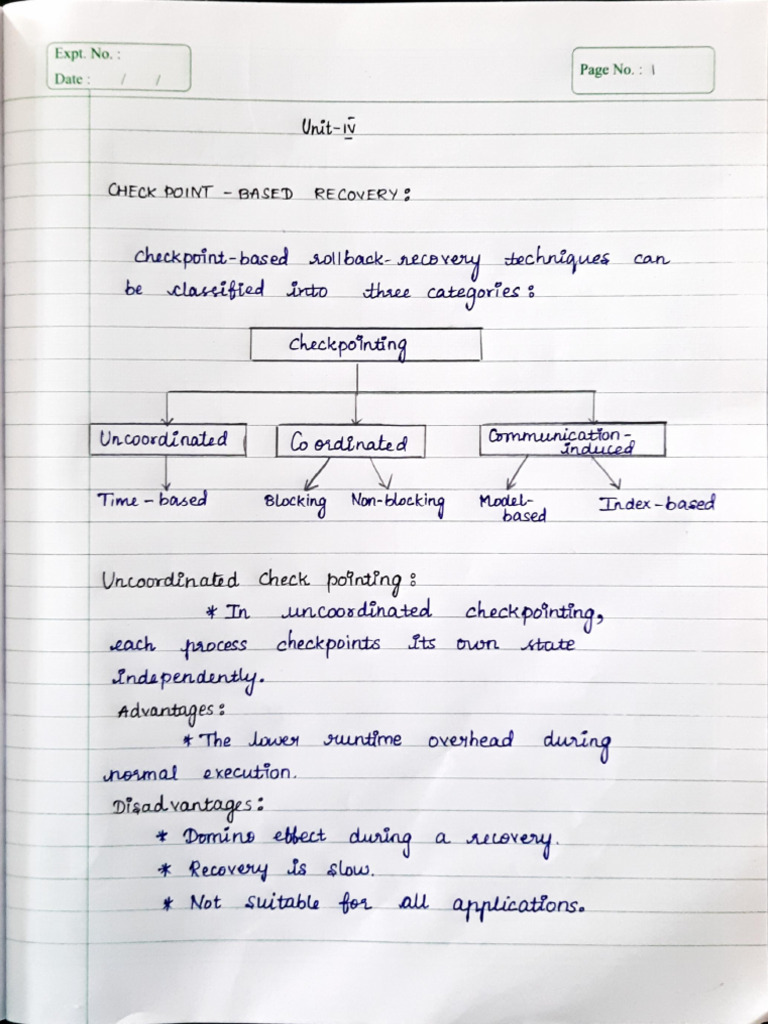 Expt. No. :
Date : / /
Page No. : 1
Unit-IV
CHECK POINT - BASED RECOVERY:
Checkpoint-based rollback-recovery techniques can
be classified into three categories:
Checkpointing
Uncoordinated
Coordinated
Communication-
induced
Time-based
Blocking
Non-blocking
Model-
based
Index-based
Uncoordinated Check pointing:
* In uncoordinated checkpointing,
each process checkpoints its own state
independently.
Advantages:
* The lower runtime overhead during
normal execution.
Disadvantages:
* Domino effect during a recovery.
* Recovery is slow.
* Not suitable for all applications.